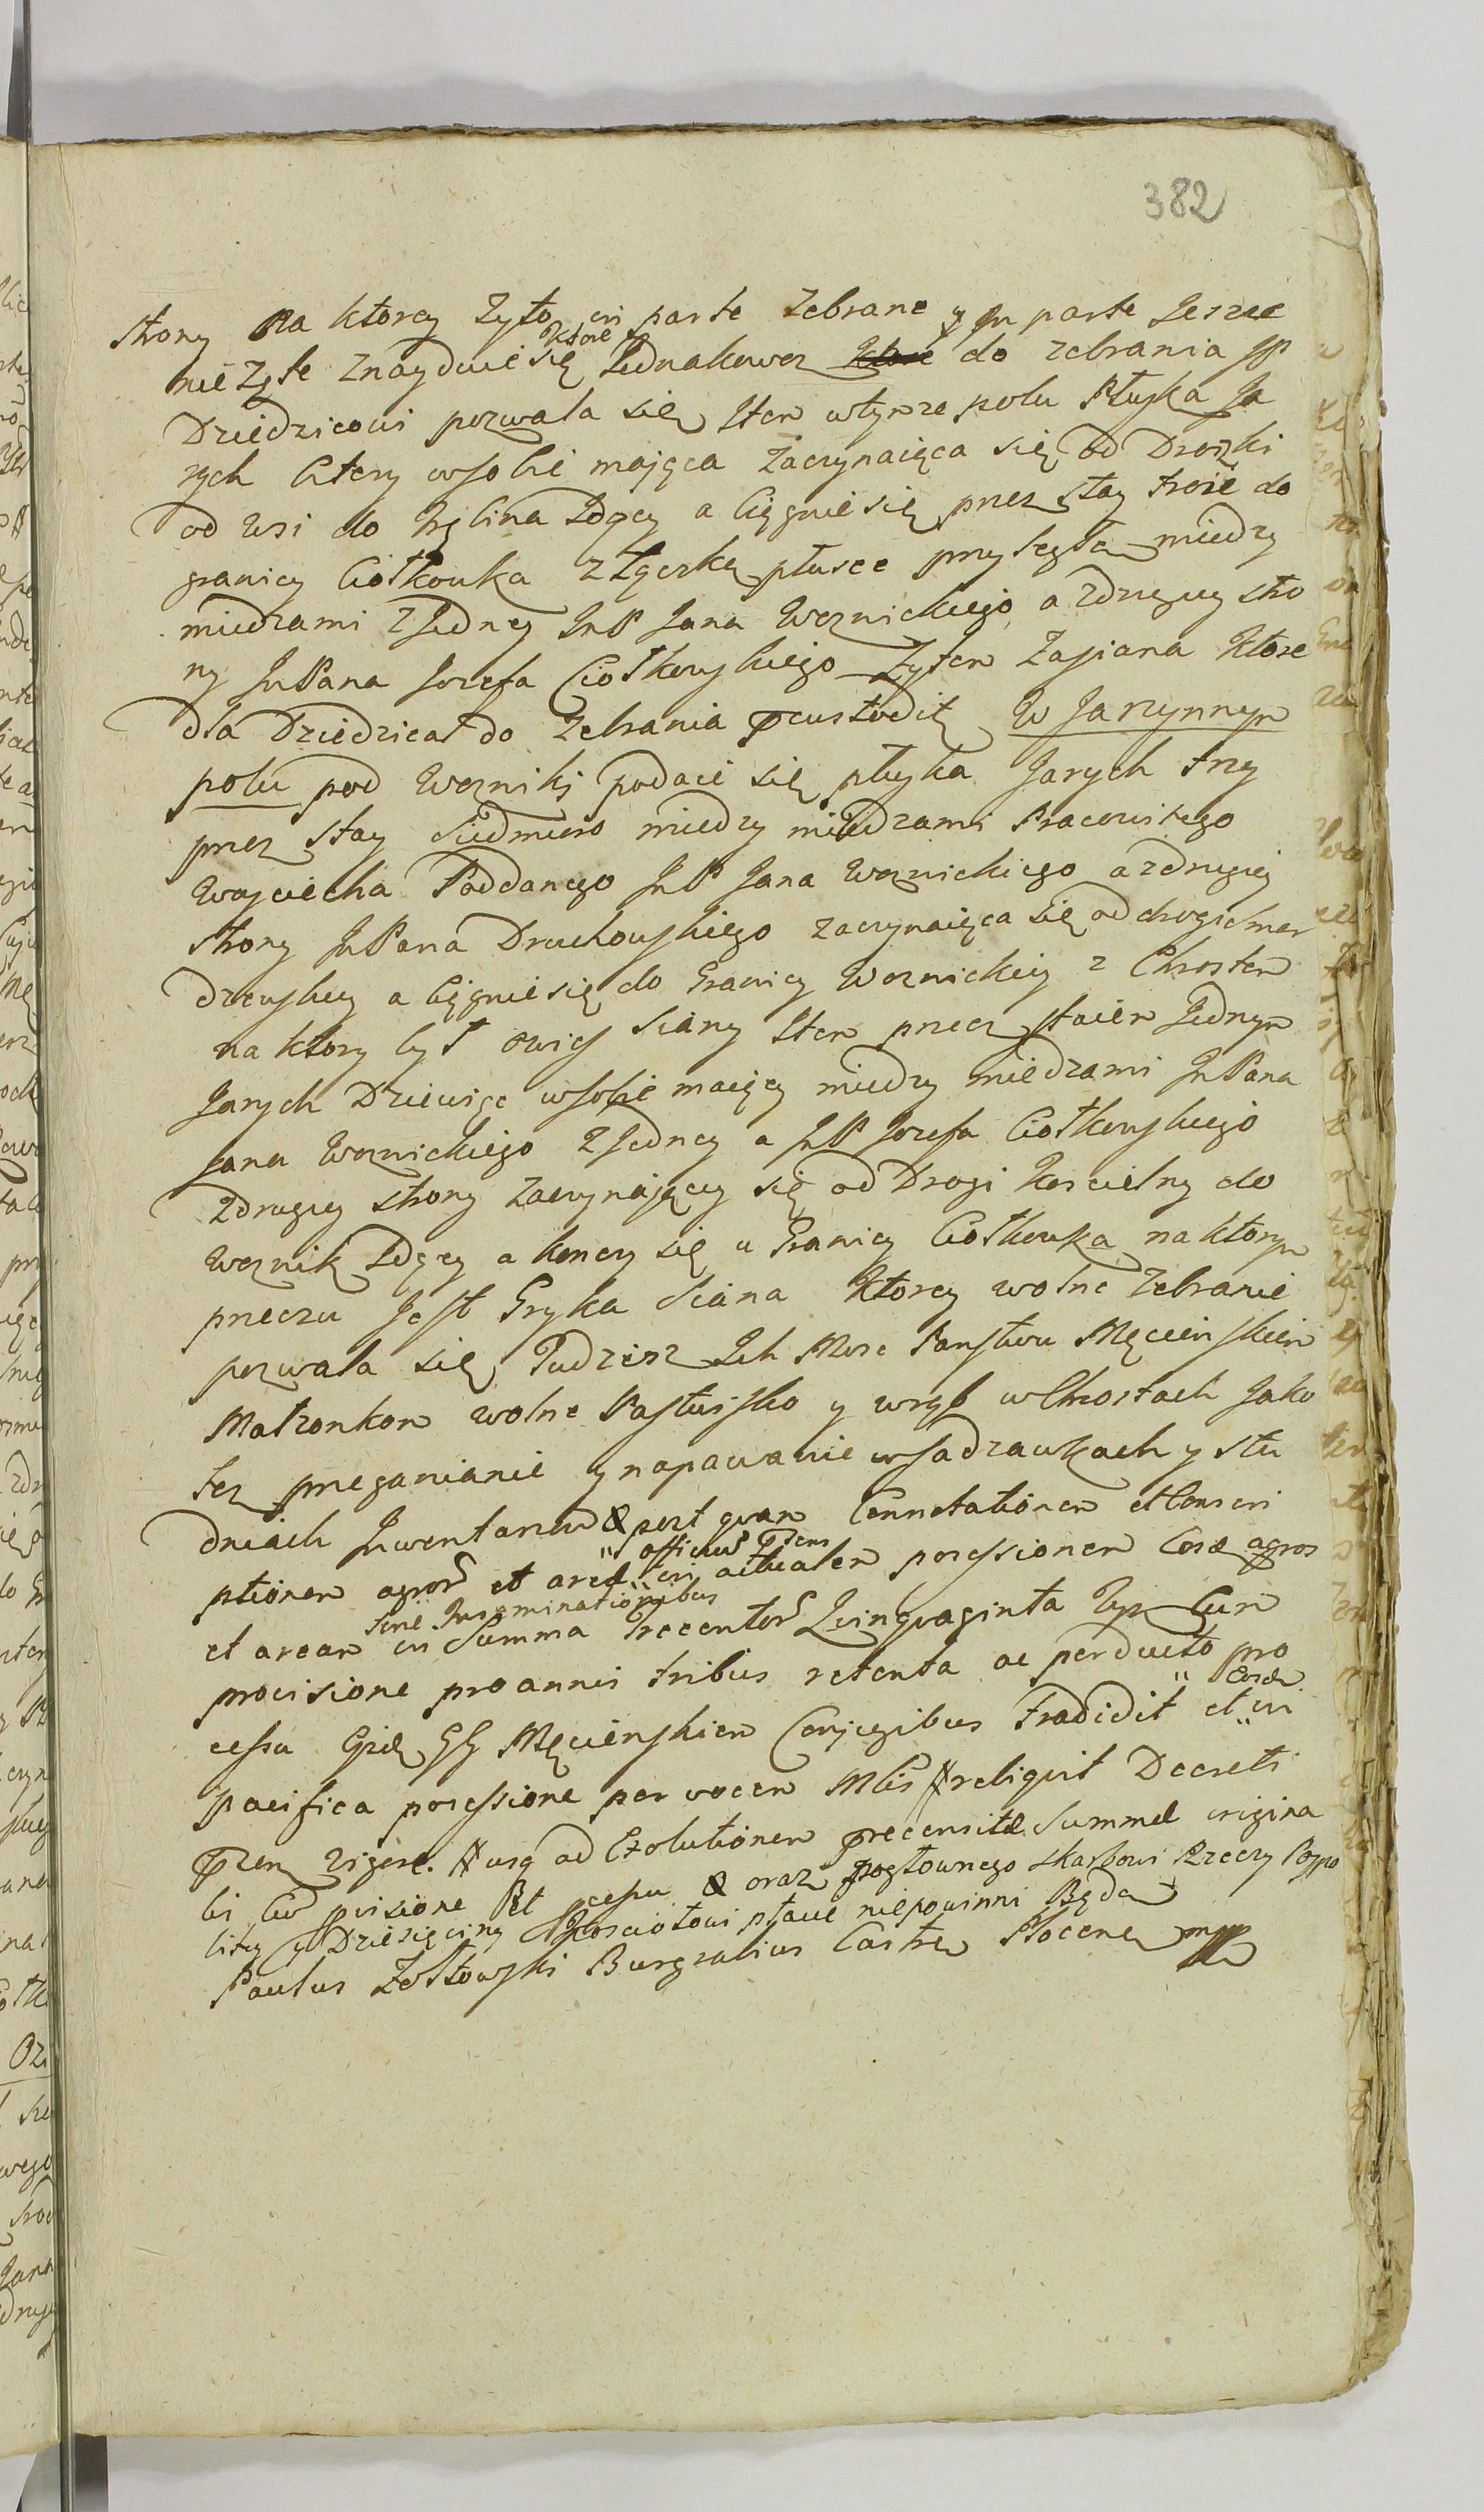 382
strony na ktorey Zyto in parte zebrane y in parte Jeszcze
nie Zęte znayduie się ktore Jednakowoz do zebrania JP
Dziedzicowi pozwala się Item wtymze polu Płuska Ja
rych Cztery wsobie mająca zaczynaiąca się od Drozki
od wsi do Idący a Ciągnie się przez stay troie do
granicy Ciołkowka z Łączką płusce przyległą miedzy
miedzami z Jedney JmP Jana Woznickiego a zdrugiey stro
ny JmPana Jozefa Ciołkowskiego Zytem Zasiana ktore
dla Dziedzica do Zebrania W Jarzynnym
polu pod Wozniki podaie się płuska Jarych trzy
przez stay Siedmioro miedzy miedzami Pracowitego
Woyciecha Poddanego JmP Jana Woznickiego a zdrugiey
strony JmPana Druchowskiego zaczynaiąca się od drogi
a Ciągnie się do Granicy Woznickiey z Chrostem
na ktory był owies Siany Item przecz staiem Jednym
Jarych Dziewięć wsobie maiący miedzy miedzami JmPana
Jana Woznickiego z Jedney a JmP Jozefa Ciołkowskiego
zdrugiey strony zaczynaiący się od Drogi Koscielny do
Woznik Idący a konczy się u Granicy Ciołkowka na ktorym
przeczu Jest Gryka Siana Ktorey wolne zebranie
pozwala się Tudziesz Ich Mosc Panstwu Męcienskim
Małzonkom wolne Pastwisko y wrąb w Chrostach Jako
tez przeganianie y napawanie wsadzawkach y stu
dniach Inwentarzow & post quam Connotationem et Conscri
ptionem agror et officium in actualem possessionem Eosd agros
et aream sine Inseminationibus in Summa Trecentor Quinquaginta Cum
provisione pro annis tribus retenta ac perducto pro
cessu Męcienskim Conjugibus Tradidit et in Eosdem
pacifica possessione per vocem reliquit Decreti
vigore. ad Exolutionem Summae origina
li & oraz skarbowi Rzeczy Pospo
litey y Dziesięciny Kosciołowi płacic niepowinni Będą
Paulus Zołtowski Burgrabius Castren Plocen mpp